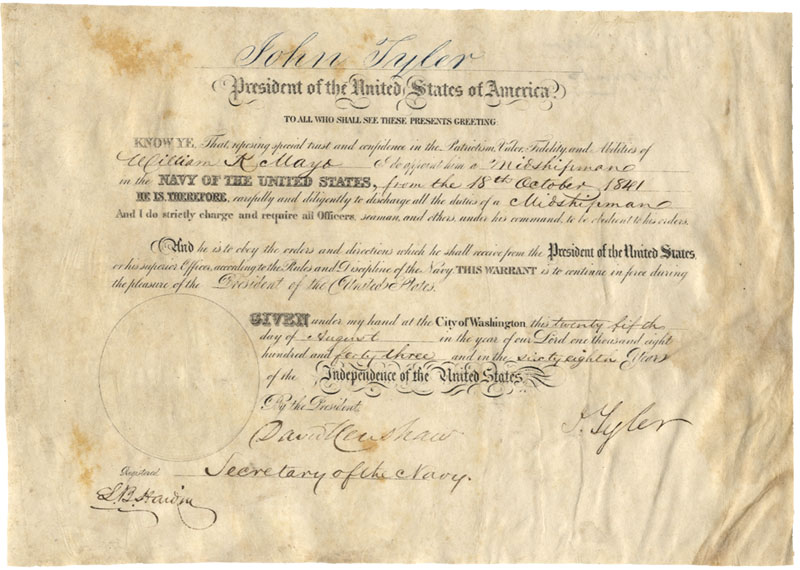 John Tyler
President of the United States of America.
TO ALL WHO SHALL SEE THESE PRESENTS GREETING:
KNOW YE, That reposing special trust and confidence in the Patriotism, Valor, Fidelity and Abilities of
William K Mayo I do appoint him a Midshipman
in the NAVY OF THE UNITED STATES, from the 18th October 1841
HE IS, THEREFORE, carefully and diligently to discharge all the duties of a Midshipman
And I do strictly charge and require all Officers, seaman, and others, under his command, to be obedient to his orders.
And he is to obey the orders and directions which he shall receive from the President of the United States,
or his superior Officer, according to the Rules and Discipline of the Navy THIS WARRANT is to continue in force during
the pleasure of the President of the United States.
GIVEN under my hand at the City of Washington this twenty fifth
day of August in the year of our Lord one thousand eight
hundred and forty three and in the sixty eighth Year
of the Independence of the United States.
By the President
J. Tyler
David Henshaw
Secretary of the Navy.
Registered